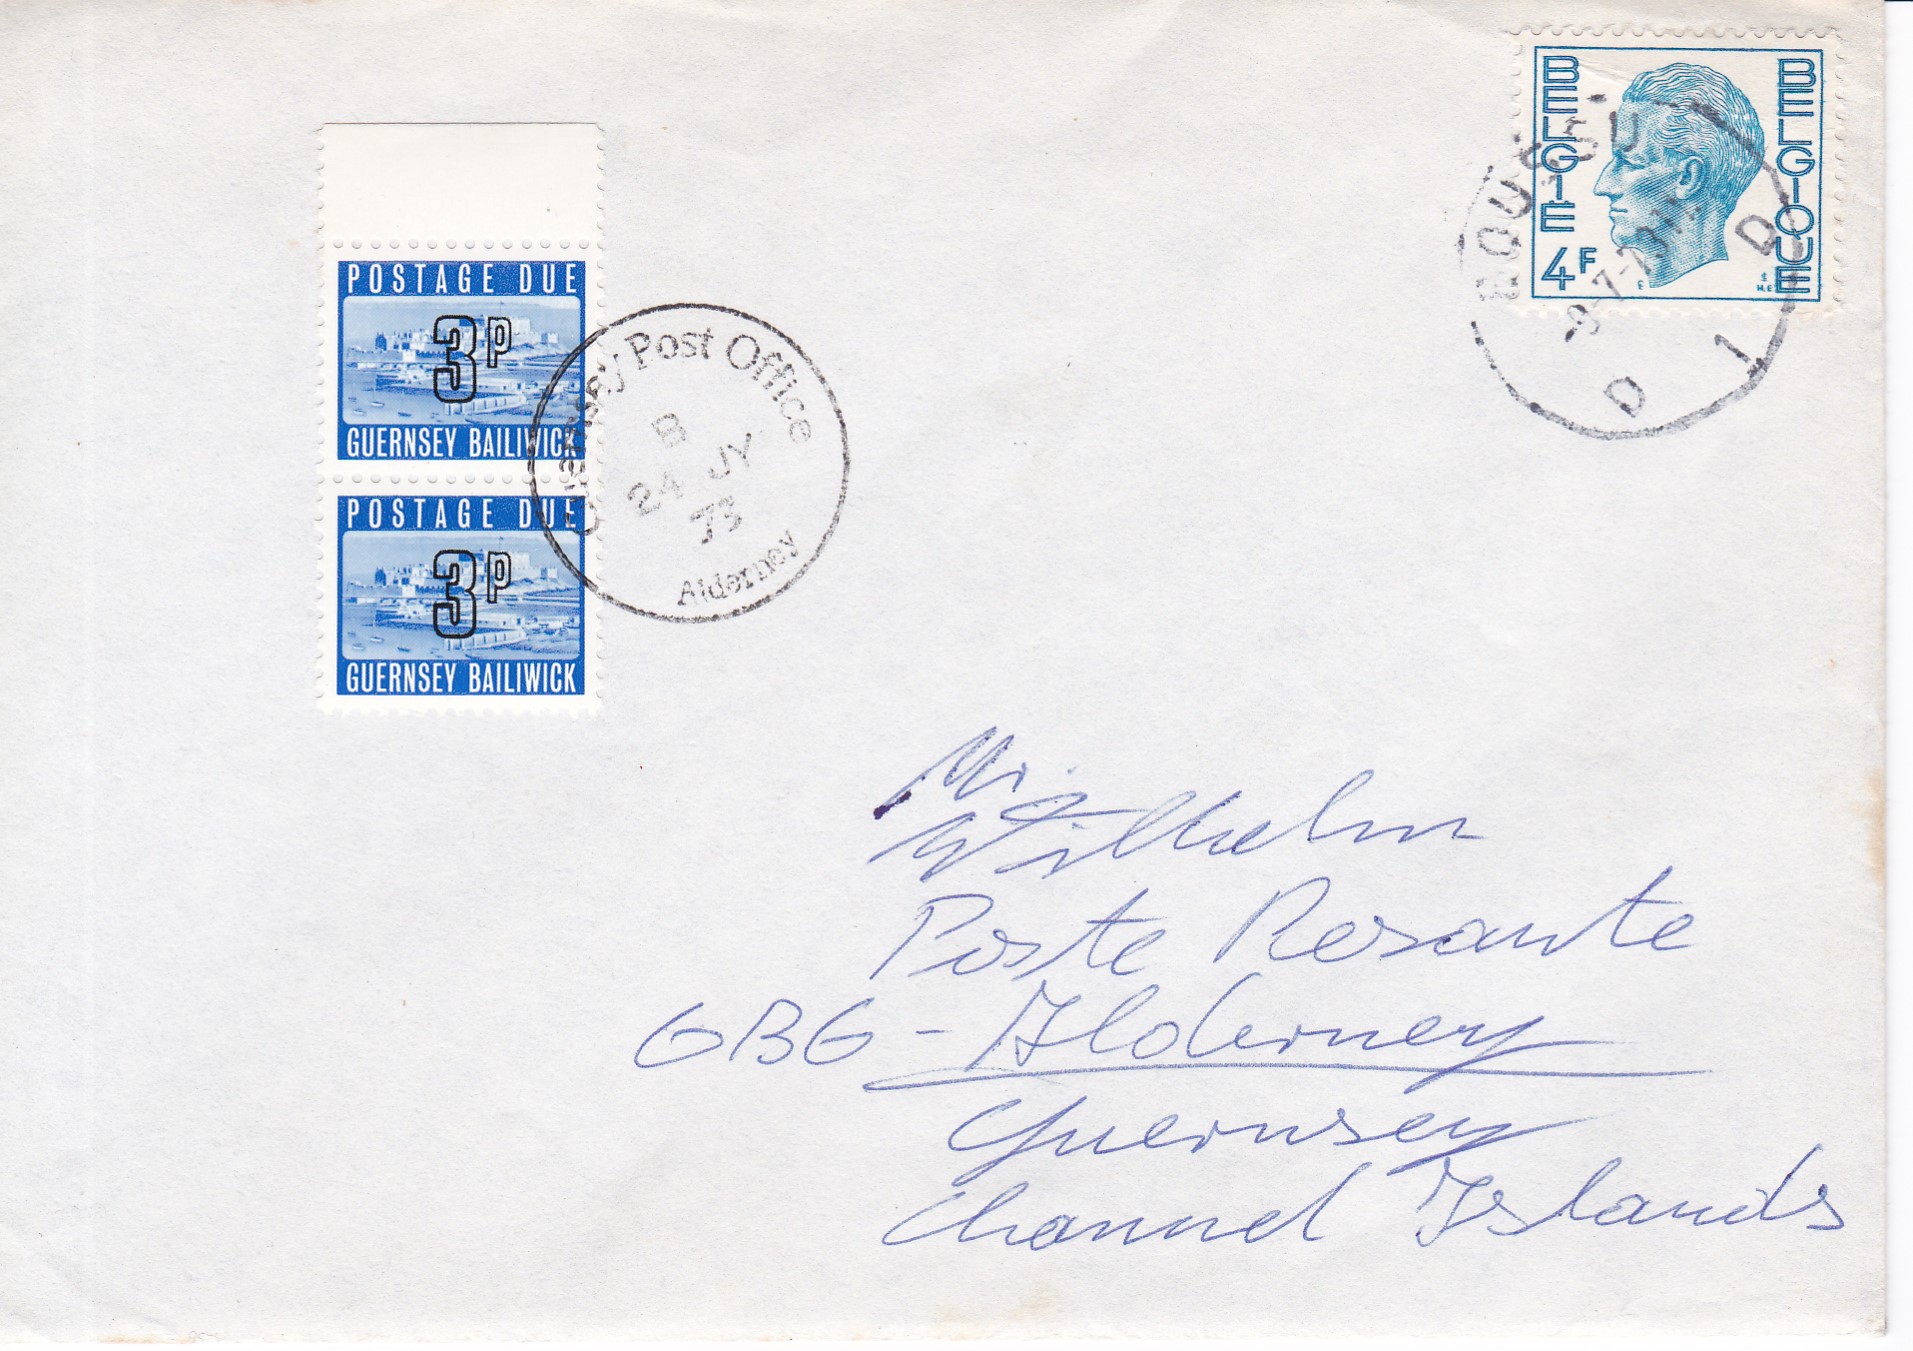 BELGIE
BELGIQUE
4F
-9-7-73
D
D
1
POSTAGE DUE
3P
GUERNSEY BAILIWICK
POSTAGE DUE
3P
GUERNSEY BAILIWICK
Guernsey Post Office
B
24 JY
73
Alderney
Mr.
Wilhelm
Poste Resante
GBG - Alderney
Guernsey
Channel Islands